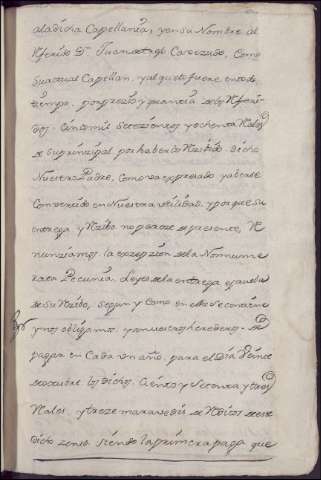 aladicha Capellanía, yensu Nombre al
Referido Dn Juan Carrizudo, Como
Suactual Capellan, yalquelo fuere entodo
tiempo, por prezio, y quantia de los Referi-
dos Cinco mil Setezientos yochenta Reales
de Suprinzipal por haberlo Rezibido dicho
Nuestro Padre, Como va expresado yaberse
Convertido en Nuestra utilidad, yporque su
entrega y Rezibo no parece de presente, Re
nunziamos la exzepzion dela Nonnume
rata Pecunia, Leyes dela entrega y prueba
de Su Rezibo, Segun y Como en ellas se contiene
y nos obligamos, yanuestros herederos a
pagar en Cada un año, para el Dia Veinte
deoctubre los dichos Ciento y Setenta y tres
Reales, y treze maravedis de Reditos deeste
dicho zenso, siendo la primera paga que